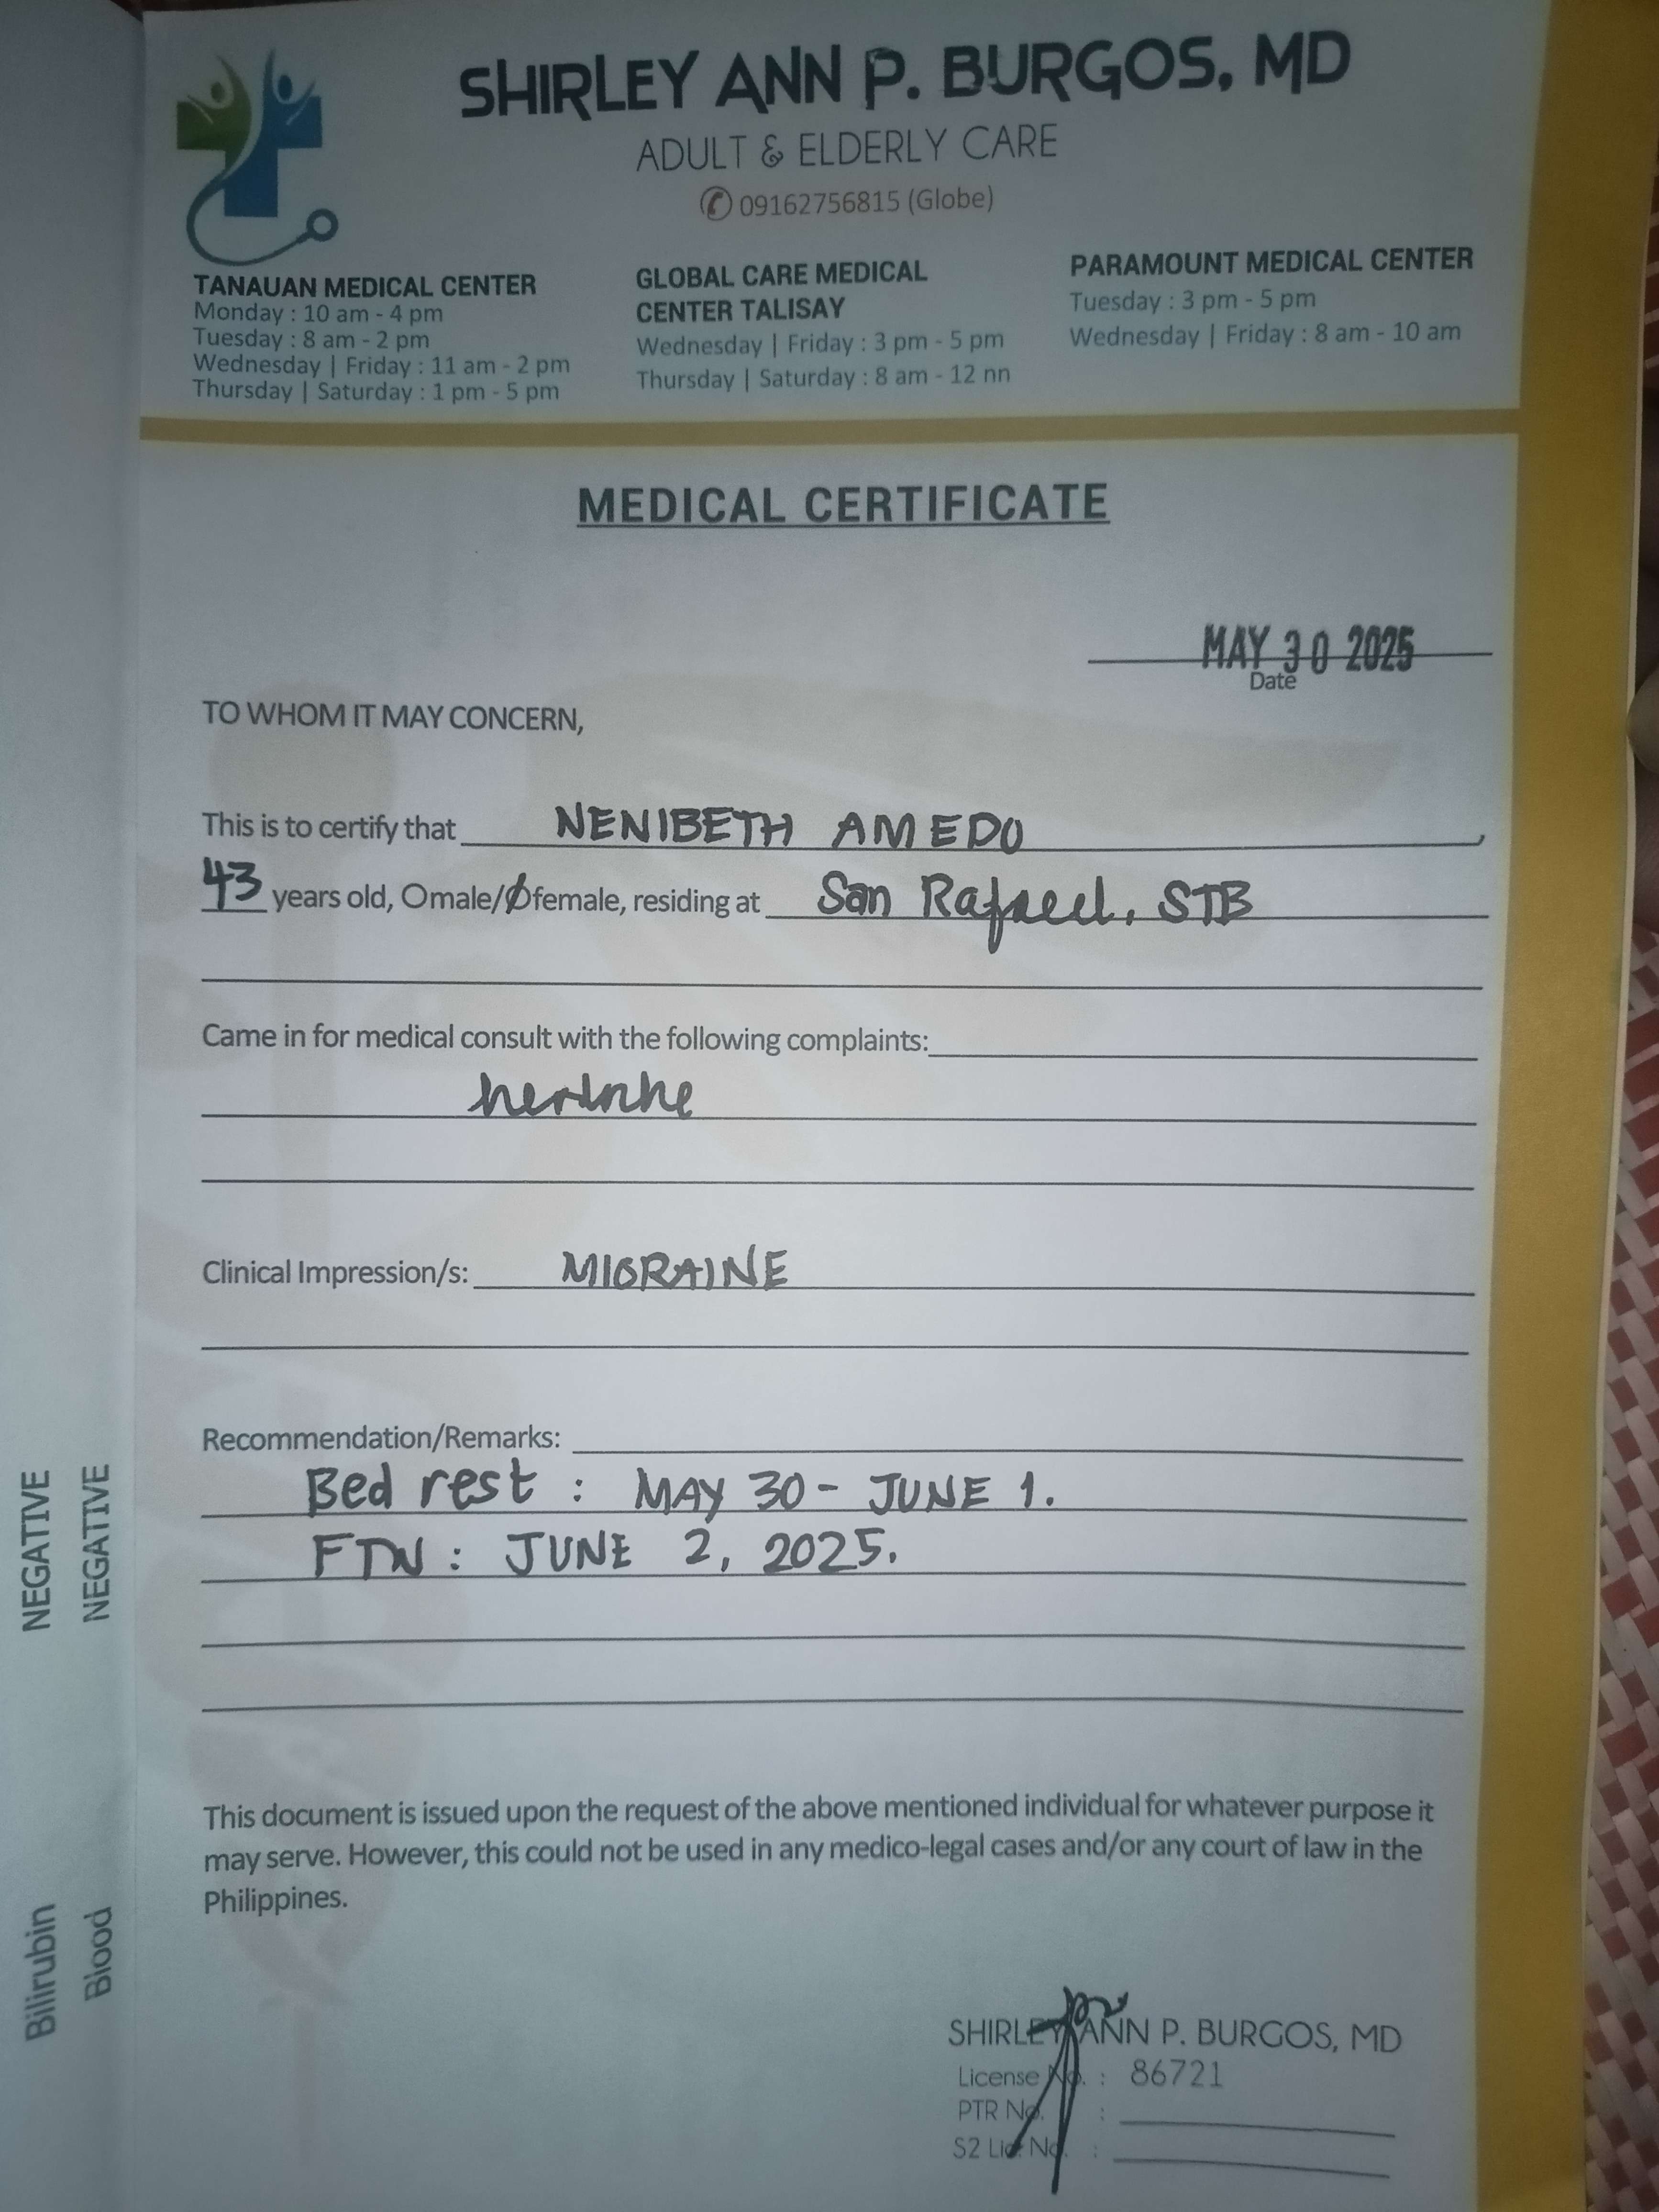 SHIRLEY ANN P. BURGOS, MD
ADULT & ELDERLY CARE
09162756815 (Globe)
TANAUAN MEDICAL CENTER
Monday : 10 am - 4 pm
Tuesday : 8 am - 2 pm
Wednesday | Friday : 11 am - 2 pm
Thursday | Saturday : 1 pm - 5 pm
GLOBAL CARE MEDICAL
CENTER TALISAY
Wednesday | Friday : 3 pm - 5 pm
Thursday | Saturday : 8 am - 12 nn
PARAMOUNT MEDICAL CENTER
Tuesday : 3 pm - 5 pm
Wednesday | Friday : 8 am - 10 am
MEDICAL CERTIFICATE
MAY 30 2025
Date
TO WHOM IT MAY CONCERN,
This is to certify that NENIBETH AMEDO,
43 years old, Omale/Ofemale, residing at San Rafael, STB
Came in for medical consult with the following complaints:
headache
Clinical Impression/s: MIGRAINE
Recommendation/Remarks:
Bed rest : MAY 30 - JUNE 1.
FTW : JUNE 2, 2025.
This document is issued upon the request of the above mentioned individual for whatever purpose it
may serve. However, this could not be used in any medico-legal cases and/or any court of law in the
Philippines.
SHIRLEY ANN P. BURGOS, MD
License No. : 86721
PTR No. :
S2 Lic. No. :
Bilirubin NEGATIVE
Blood NEGATIVE